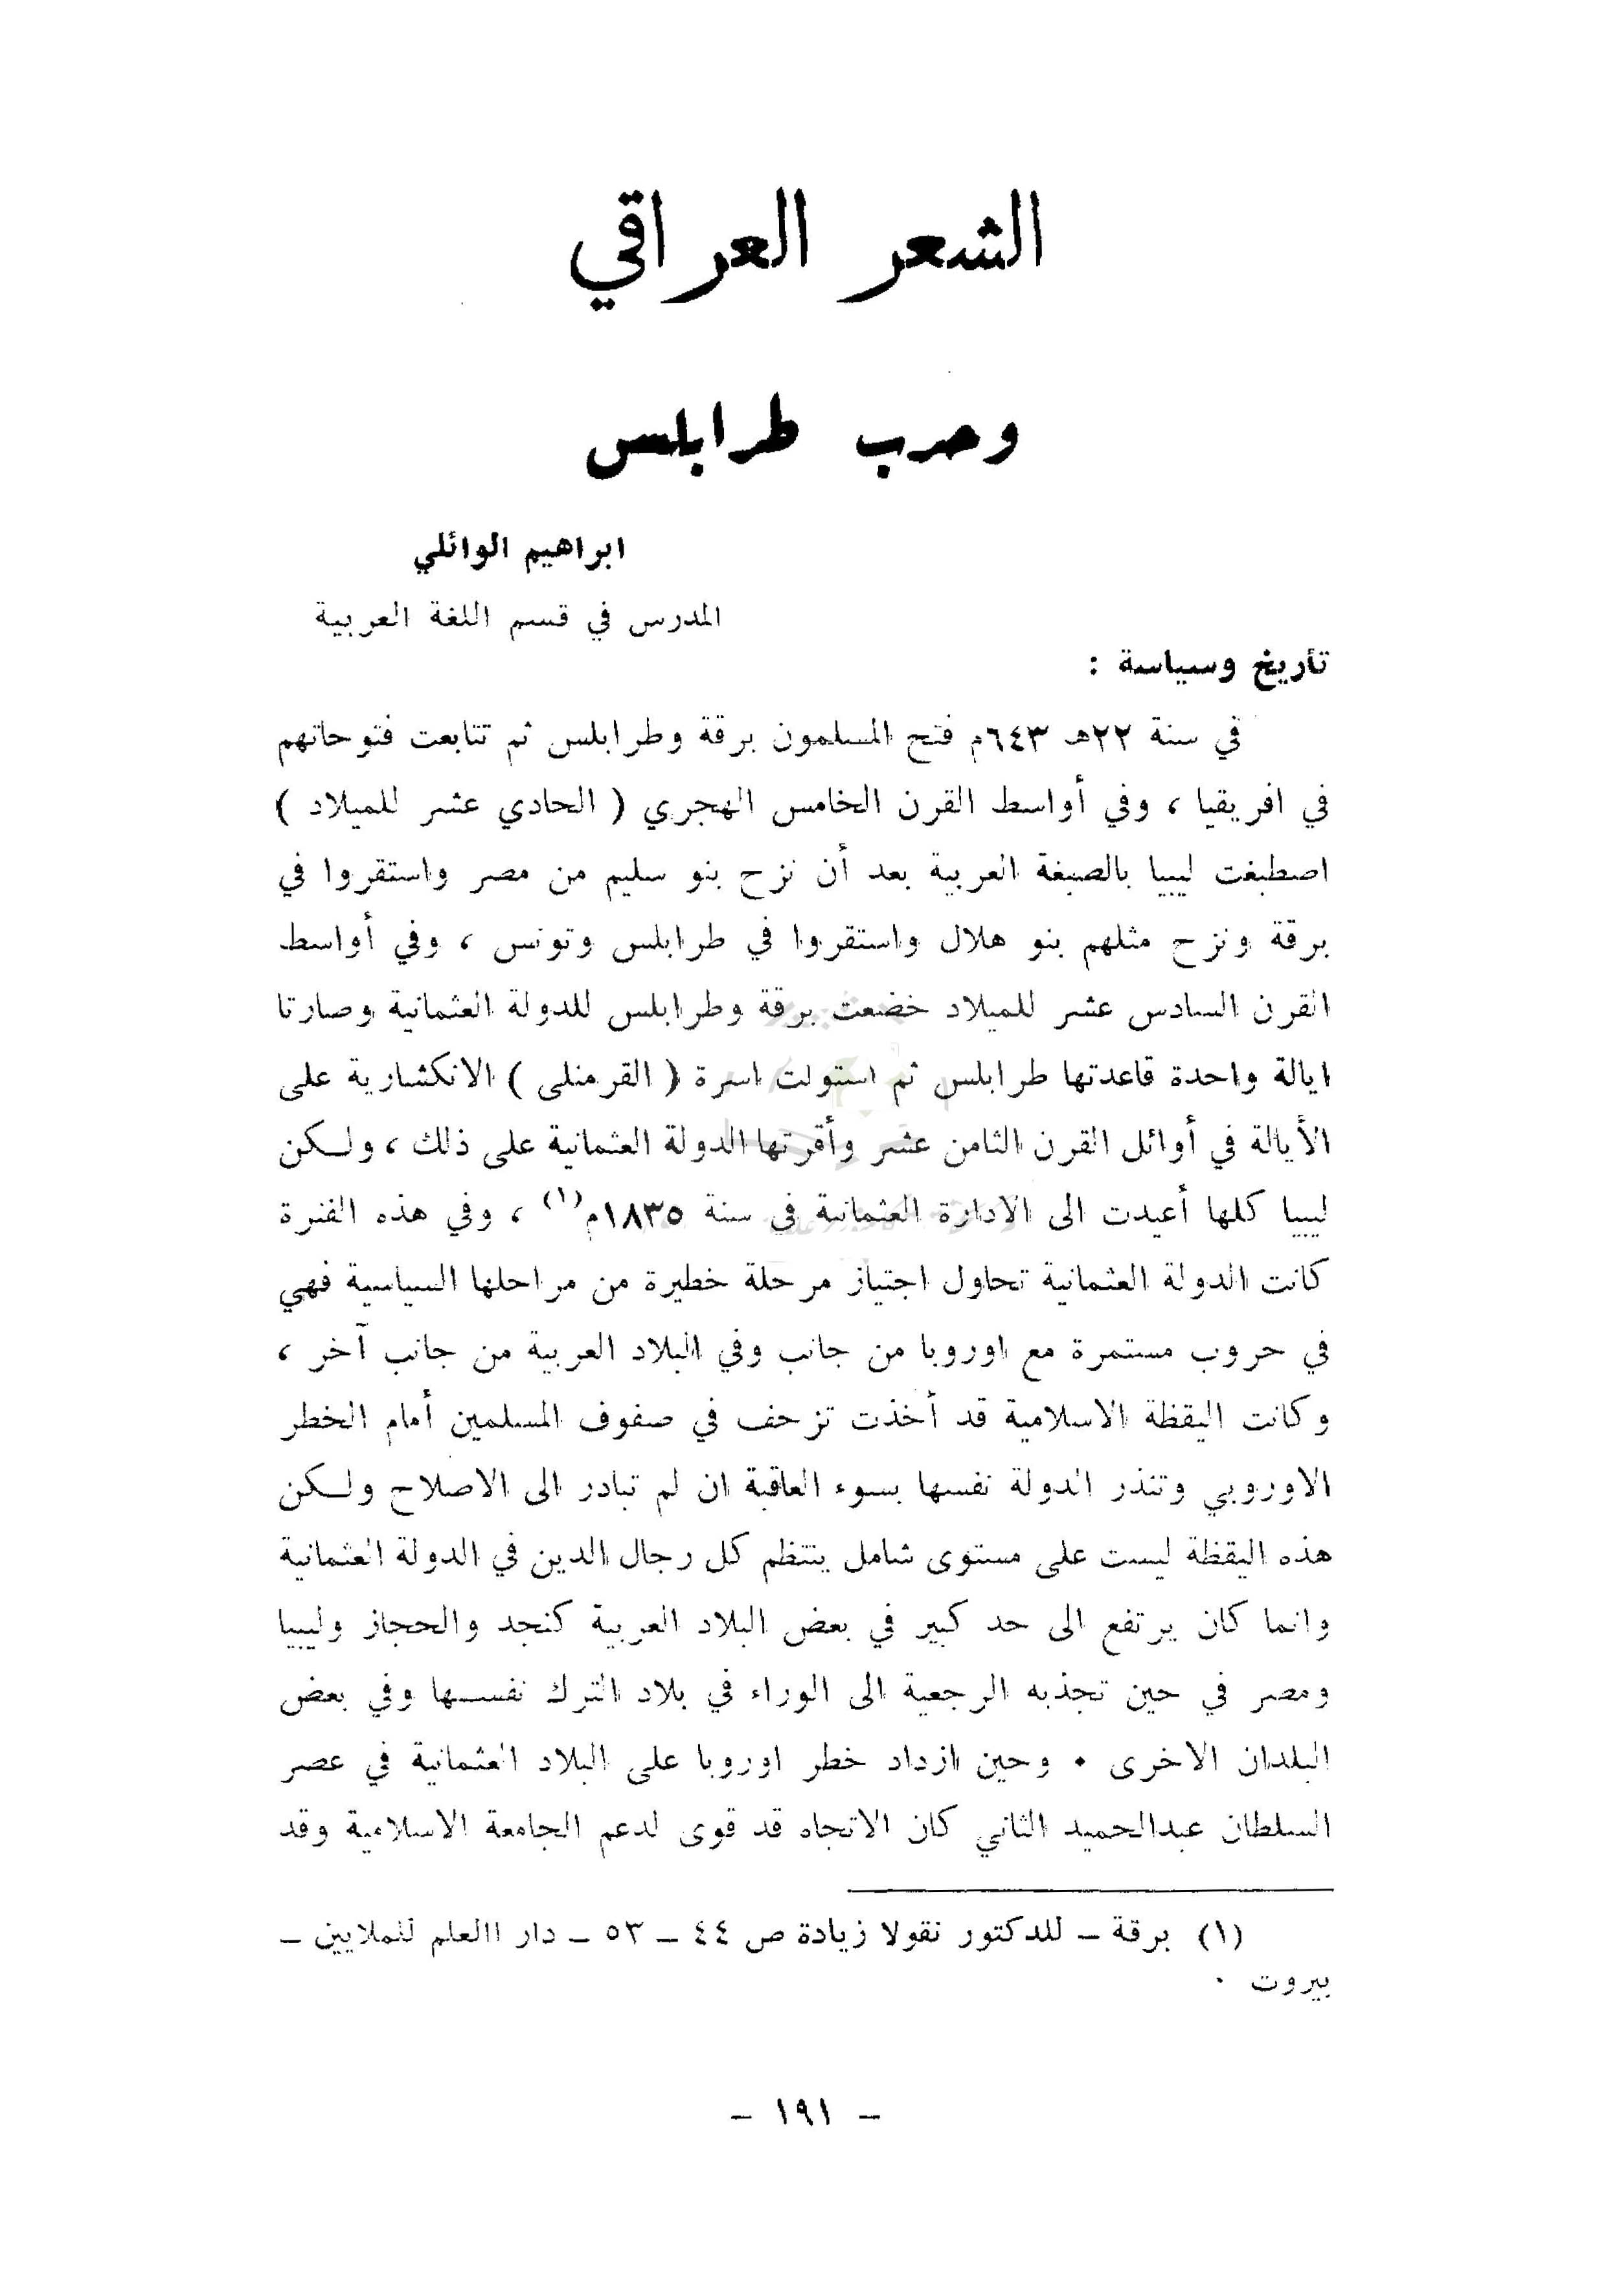 الشعر العراقي
وحرب طرابلس
ابراهيم الوائلي
المدرس في قسم اللغة العربية
تأريخ وسياسة :
في سنة ٢٢هـ ٦٤٣م فتح المسلمون برقة وطرابلس ثم تتابعت فتوحاتهم
في افريقيا ، وفي أواسط القرن الخامس الهجري ( الحادي عشر للميلاد )
اصطبغت ليبيا بالصبغة العربية بعد أن نزح بنو سليم من مصر واستقروا في
برقة ونزح مثلهم بنو هلال واستقروا في طرابلس وتونس ، وفي أواسط
القرن السادس عشر للميلاد خضعت برقة وطرابلس للدولة العثمانية وصارتا
ايالة واحدة قاعدتها طرابلس ثم استولت اسرة ( القرمنلى ) الانكشارية على
الأيالة في أوائل القرن الثامن عشر وأقرتها الدولة العثمانية على ذلك ، ولكن
ليبيا كلها أعيدت الى الادارة العثمانية في سنة ١٨٣٥م(١) ، وفي هذه الفترة
كانت الدولة العثمانية تحاول اجتياز مرحلة خطيرة من مراحلها السياسية فهي
في حروب مستمرة مع اوروبا من جانب وفي البلاد العربية من جانب آخر ،
وكانت اليقظة الاسلامية قد أخذت تزحف في صفوف المسلمين أمام الخطر
الاوروبي وتنذر الدولة نفسها بسوء العاقبة ان لم تبادر الى الاصلاح ولكن
هذه اليقظة ليست على مستوى شامل ينتظم كل رجال الدين في الدولة العثمانية
وانما كان يرتفع الى حد كبير في بعض البلاد العربية كنجد والحجاز وليبيا
ومصر في حين تجذبه الرجعية الى الوراء في بلاد الترك نفسها وفي بعض
البلدان الاخرى . وحين ازداد خطر اوروبا على البلاد العثمانية في عصر
السلطان عبدالحميد الثاني كان الاتجاه قد قوى لدعم الجامعة الاسلامية وقد
(١) برقة – للدكتور نقولا زيادة ص ٤٤ – ٥٣ – دار االعلم للملايين –
بيروت .
– ١٩١ –